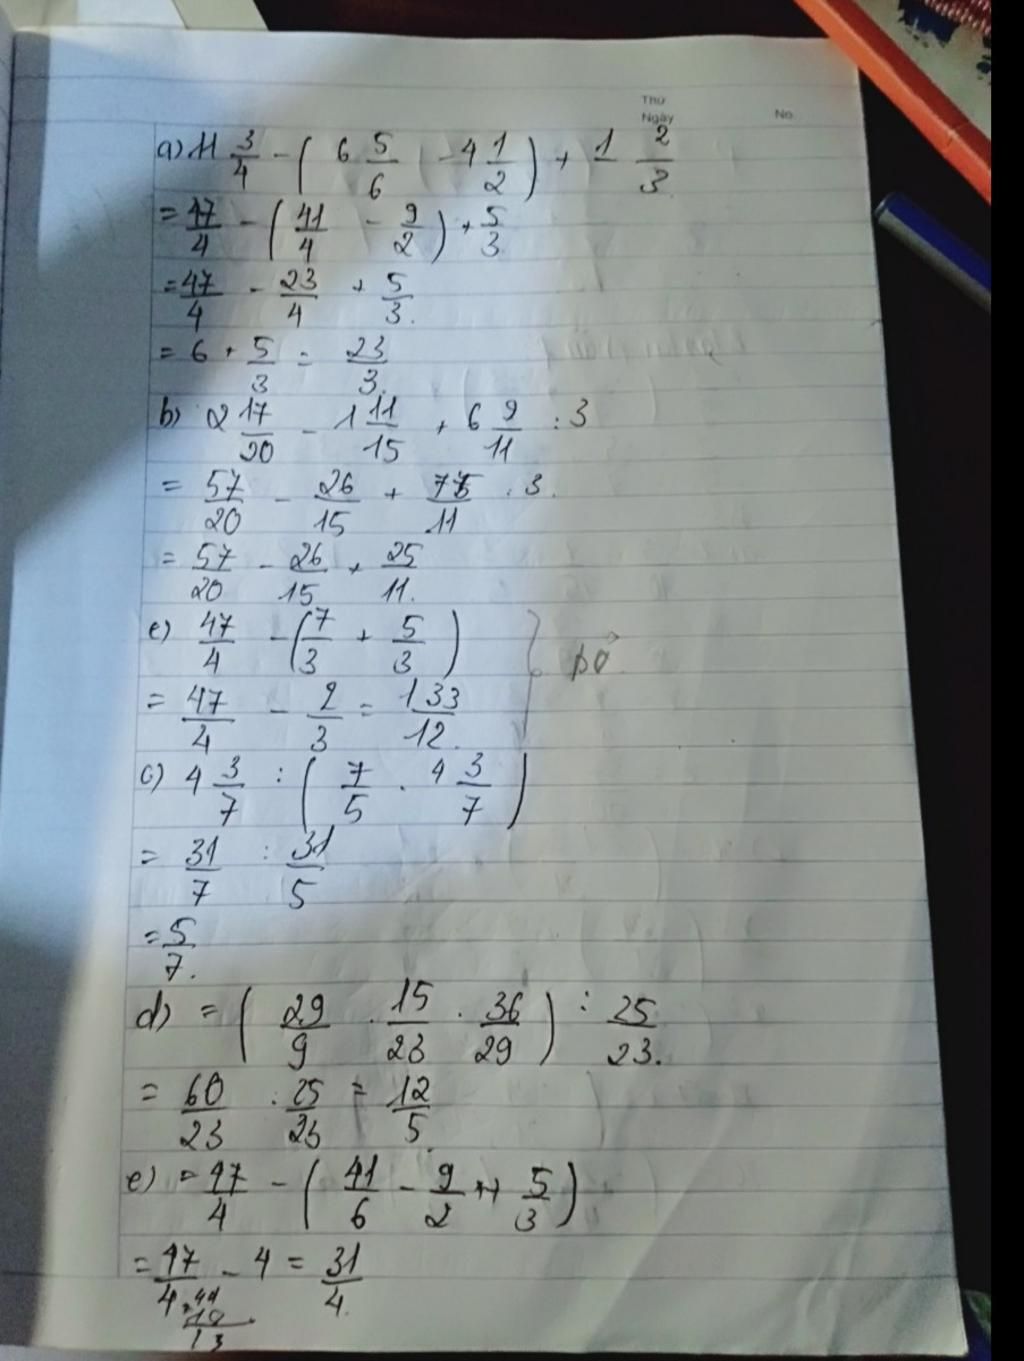 Thứ
Ngày No.
a) 11 3/4 - ( 6 5/6 - 4 1/2 ) + 1 2/3
= 47/4 - ( 41/4 - 9/2 ) + 5/3
= 47/4 - 23/4 + 5/3.
= 6 + 5/3 = 23/3.
b) 2 17/20 - 1 11/15 + 6 9/11 : 3
= 57/20 - 26/15 + 75/11 : 3.
= 57/20 - 26/15 + 25/11.
e) 47/4 - ( 7/3 + 5/3 ) } bỏ
= 47/4 - 2/3 = 133/12.
c) 4 3/7 : ( 7/5 . 4 3/7 )
= 31/7 : 31/5
= 5/7.
d) = ( 29/9 . 15/23 . 36/29 ) : 25/23.
= 60/23 : 25/23 = 12/5
e) = 47/4 - ( 41/6 - 9/2 + 5/3 )
= 47/4 - 4 = 31/4.